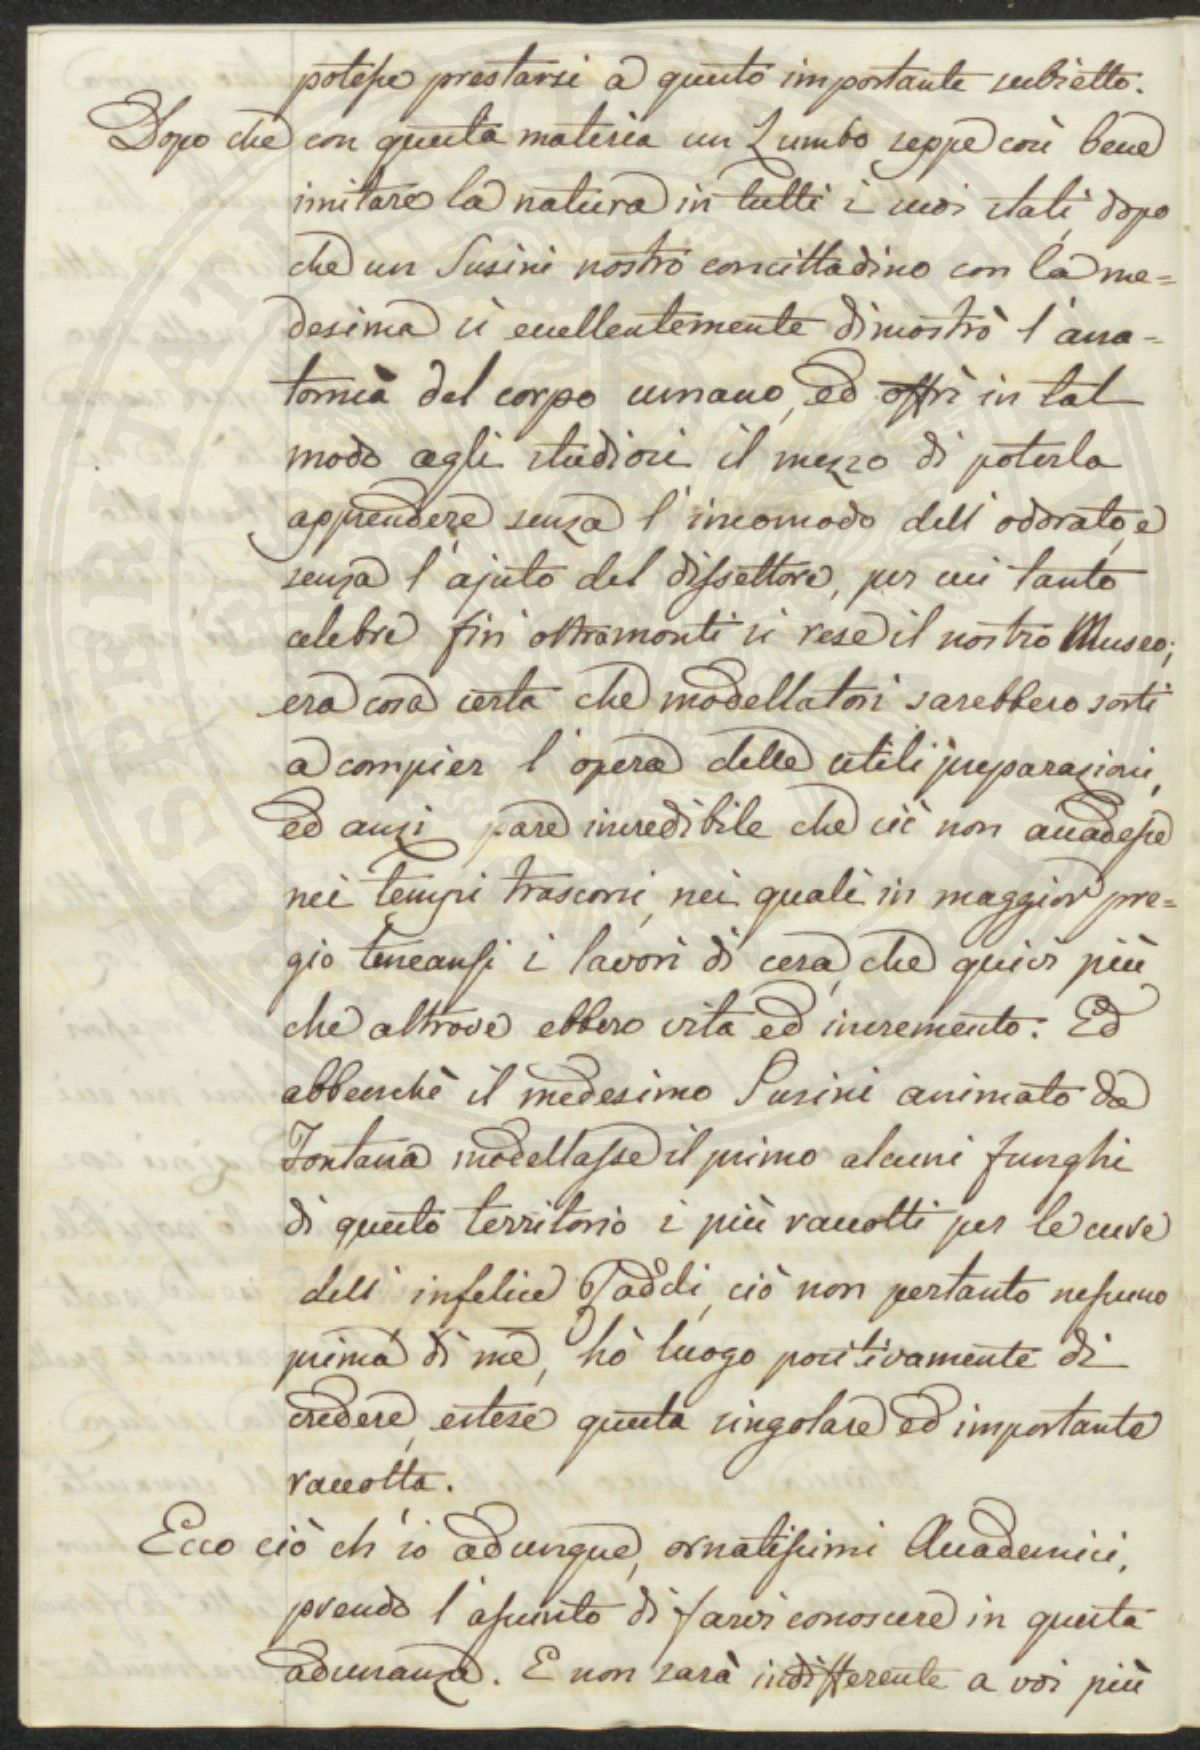 potesse prestarsi a questo importante subietto.
Dopo che con questa materia un Zumbo seppe così bene
imitare la natura in tutti i suoi stati, dopo
che un Susini nostro concittadino con la me=
desima sì eccellentemente dimostrò l'ana=
tomia del corpo umano, ed offrì in tal
modo agli studiosi il mezzo di poterla
apprendere senza l'incomodo dell'odorato, e
senza l'ajuto del dissettore, per cui tanto
celebre fin oltramonti si rese il nostro Museo;
era cosa certa che modellatori sarebbero sorti
a compier l'opera delle utili preparazioni,
ed anzi pare incredibile che ciò non accadesse
nei tempi trascorsi, nei quali in maggior pre=
gio teneansi i lavori di cera, che quivi più
che altrove ebbero vita ed incremento: Ed
abbenchè il medesimo Susini animato da
Fontana modellasse il primo alcuni funghi
di questo territorio i più raccolti per le cure
dell'infelice Taddei, ciò non pertanto nessuno
prima di me, hò luogo positivamente di
credere, estese questa singolare ed importante
raccolta.
Ecco ciò ch'io adunque, ornatissimi Accademici,
prendo l'assunto di farvi conoscere in questa
adunanza. E non sarà indifferente a voi più
PROSPERITATI